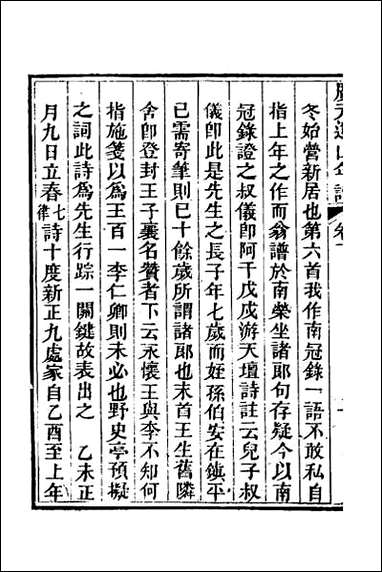 廣元遺山年譜 卷下
冬始營新居也第六首我作南冠錄一語不敢私自
指上年之作而翁譜於南榮坐諸郞句存疑今以南
冠錄證之叔儀卽阿千戊戌游天壇詩註云兒子叔
儀卽此是先生之長子年七歲而姪孫伯安在鎭平
已需寄筆則已十餘歲所謂諸郞也末首王生舊隣
舍卽登封王子襄名贊者下云永懷王與李不知何
指施箋以爲王百一李仁卿則未必也野史亭預擬
之詞此詩爲先生行踪一關鍵故表出之 乙未正
月九日立春七律詩十度新正九處家自乙酉至上年